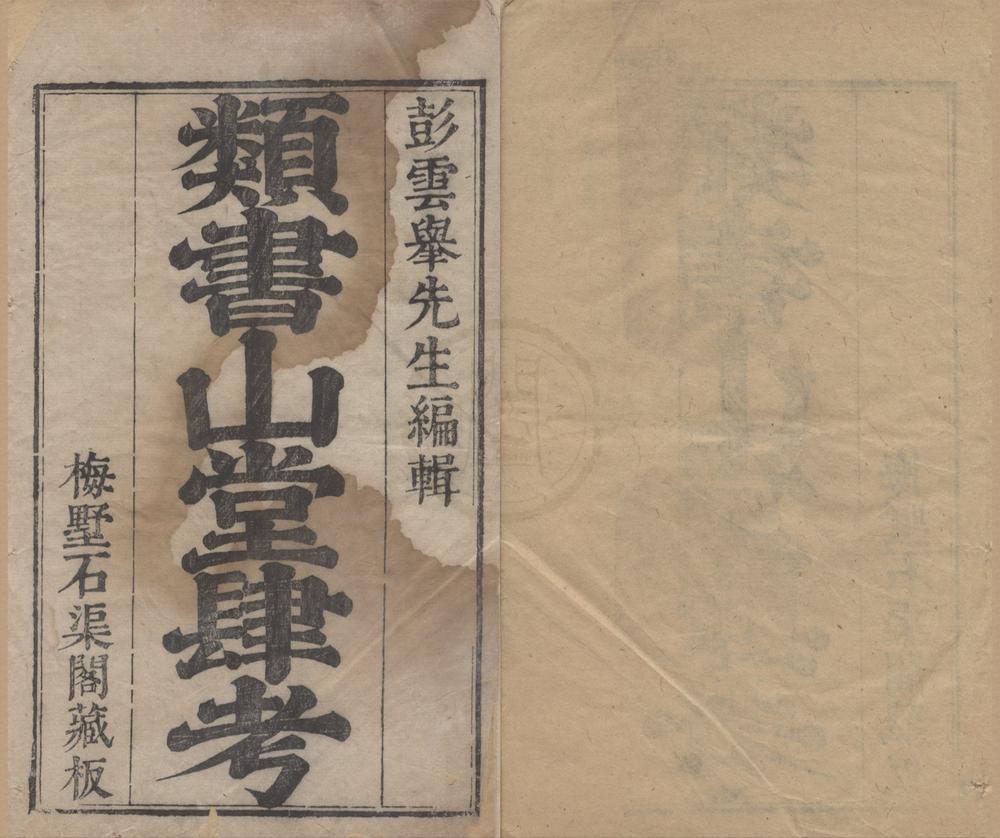 彭雲舉先生編輯
類書山堂肆考
梅墅石渠閣藏板